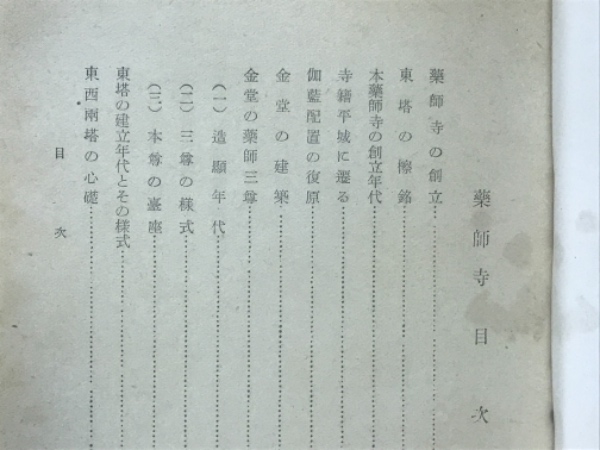 藥師寺目次
藥師寺の創立
東塔の檫銘
本藥師寺の創立年代
寺籍平城に遷る
伽藍配置の復原
金堂の建築
金堂の藥師三尊
(一) 造顯年代
(二) 三尊の樣式
(三) 本尊の臺座
東塔の建立年代とその樣式
東西兩塔の心礎
目次